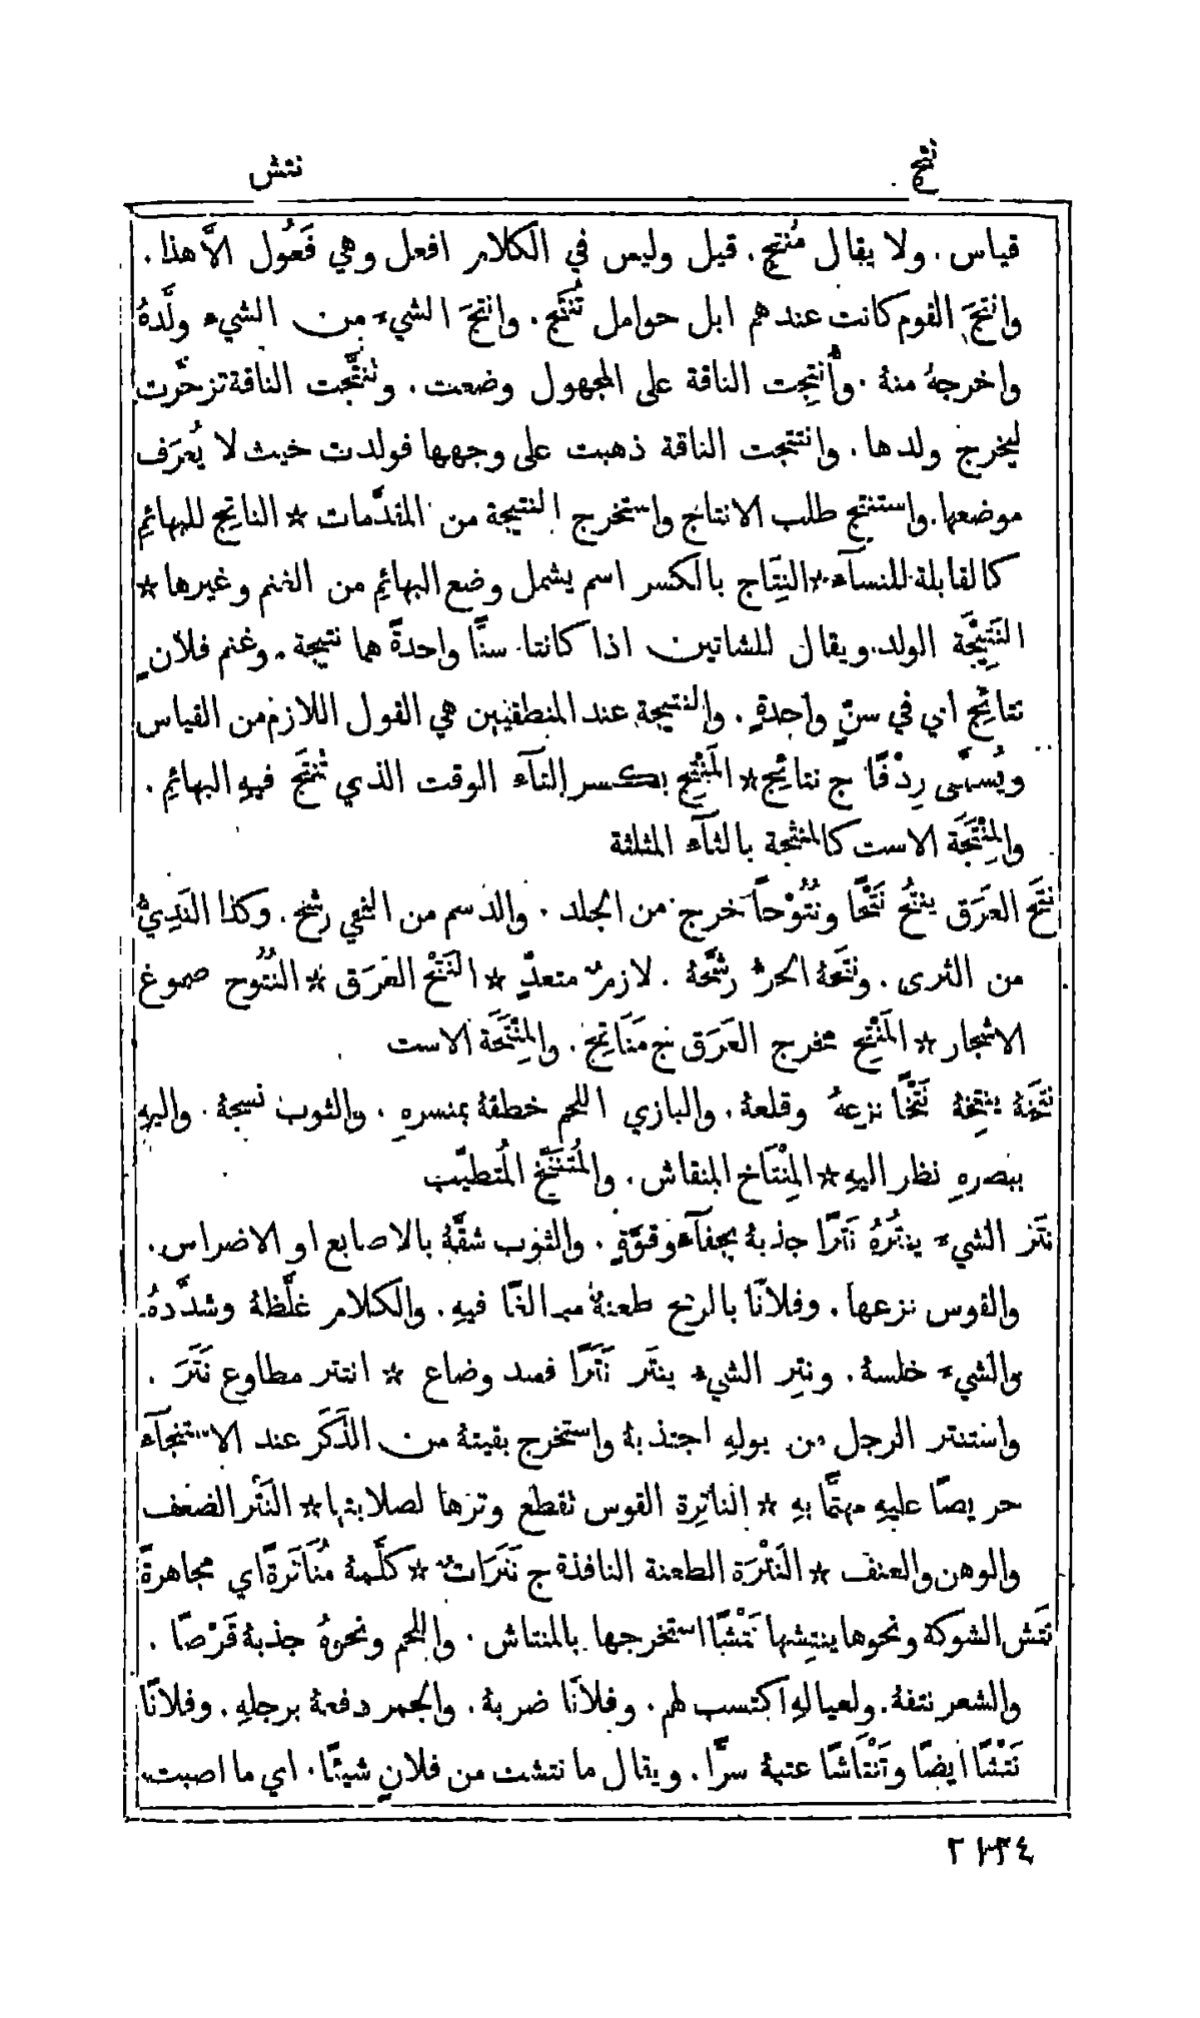 نتج
نتش
قياس. ولا يقال مُنتِج. قيل وليس في الكلام افعل وهي فَعُول الَّا هذا.
وانتجَ القوم كانت عندهم ابل حوامل تُنتَج. وانتجَ الشيءَ من الشيء ولَّدهُ
واخرجهُ منهُ. وأُنتِجت الناقة على المجهول وضعت. وتنتَّجت الناقة تزحَّرت
ليخرج ولدها. وانتتجت الناقة ذهبت على وجهها فولدت حيث لا يُعرَف
موضعها. واستنتج طلب الانتاج واستخرج النتيجة من المقدَّمات ☆ الناتِج للبهائِم
كالقابلة للنسآء ☆ النِتَاج بالكسر اسم يشمل وضع البهائِم من الغنم وغيرها ☆
النَتِيْجَة الولد. ويقال للشاتين اذا كانتا سنًّا واحدةً هما نتيجة. وغنم فلانٍ
نتائِج اي في سنٍّ واحدةٍ. والنتيجة عند المنطقيين هي القول اللازم من القياس
ويُسمَّى رِدْفًا ج نتائِج ☆ المَنْتِج بكسر التآء الوقت الذي تُنتَج فيهِ البهائِم.
والمِنْتَجَة الاست كالمنثجة بالثآء المثلثة
نَتَحَ العرَق ينتُح نَتْحًا ونُتُوْحًا خرج من الجلد. والدسم من النحي رشح. وكذا النَدِيّ
من الثرى. ونتَحهُ الحرُّ رشَّحهُ. لازمٌ متعدٍّ ☆ النَتْح العَرَق ☆ النُتُوح صموغ
الاشجار ☆ المَنْتِح مخرج العَرَق ج مَنَاتِح. والمِنْتَحَة الاست
نتَخهُ ينتِخهُ نَتْخًا نزعهُ وقلعهُ. والبازي اللحم خطفهُ بمنسرهِ. والثوب نسجهُ. واليهِ
ببصرهِ نظر اليهِ ☆ المِنْتَاخ المنقاش. والمُتَنَتِّخ المُتطبّب
نتَر الشيءَ ينتُرُهُ نَتْرًا جذبهُ بجفآءٍ وقوَّةٍ. والثوب شقَّهُ بالاصابع او الاضراس.
والقوس نزعها. وفلانًا بالرمح طعنهُ مبالغًا فيهِ. والكلام غلَّظهُ وشدَّدهُ.
والشيءَ خلسهُ. ونتِر الشيء ينتَر نَتَرًا فسد وضاع ☆ انتتر مطاوع نَتَرَ.
واستنتر الرجل من بولهِ اجتذبهُ واستخرج بقيتهُ من الذَّكَر عند الاستنجآء
حريصًا عليهِ مهتمًّا بهِ ☆ الناتِرة القوس تقطع وترها لصلابتها ☆ النَتْر الضعف
والوهن والعنف ☆ النَتْرَة الطعنة النافذة ج نَتَرَات ☆ كلَّمهُ مُنَاتَرةً اي مجاهرةً
نَتَش الشوكة ونحوها ينتِشها نَتْشًا استخرجها بالمنتاش. واللحم ونحوهُ جذبهُ قَرْصًا.
والشعر نتفهُ. ولعيالهِ اكتسب لهم. وفلانًا ضربهُ. والحجر دفعهُ برجلهِ. وفلانًا
نَتْشًا ايضًا وتَنْتَاشًا عتبهُ سرًّا. ويقال ما نتشت من فلانٍ شيئًا. اي ما اصبت